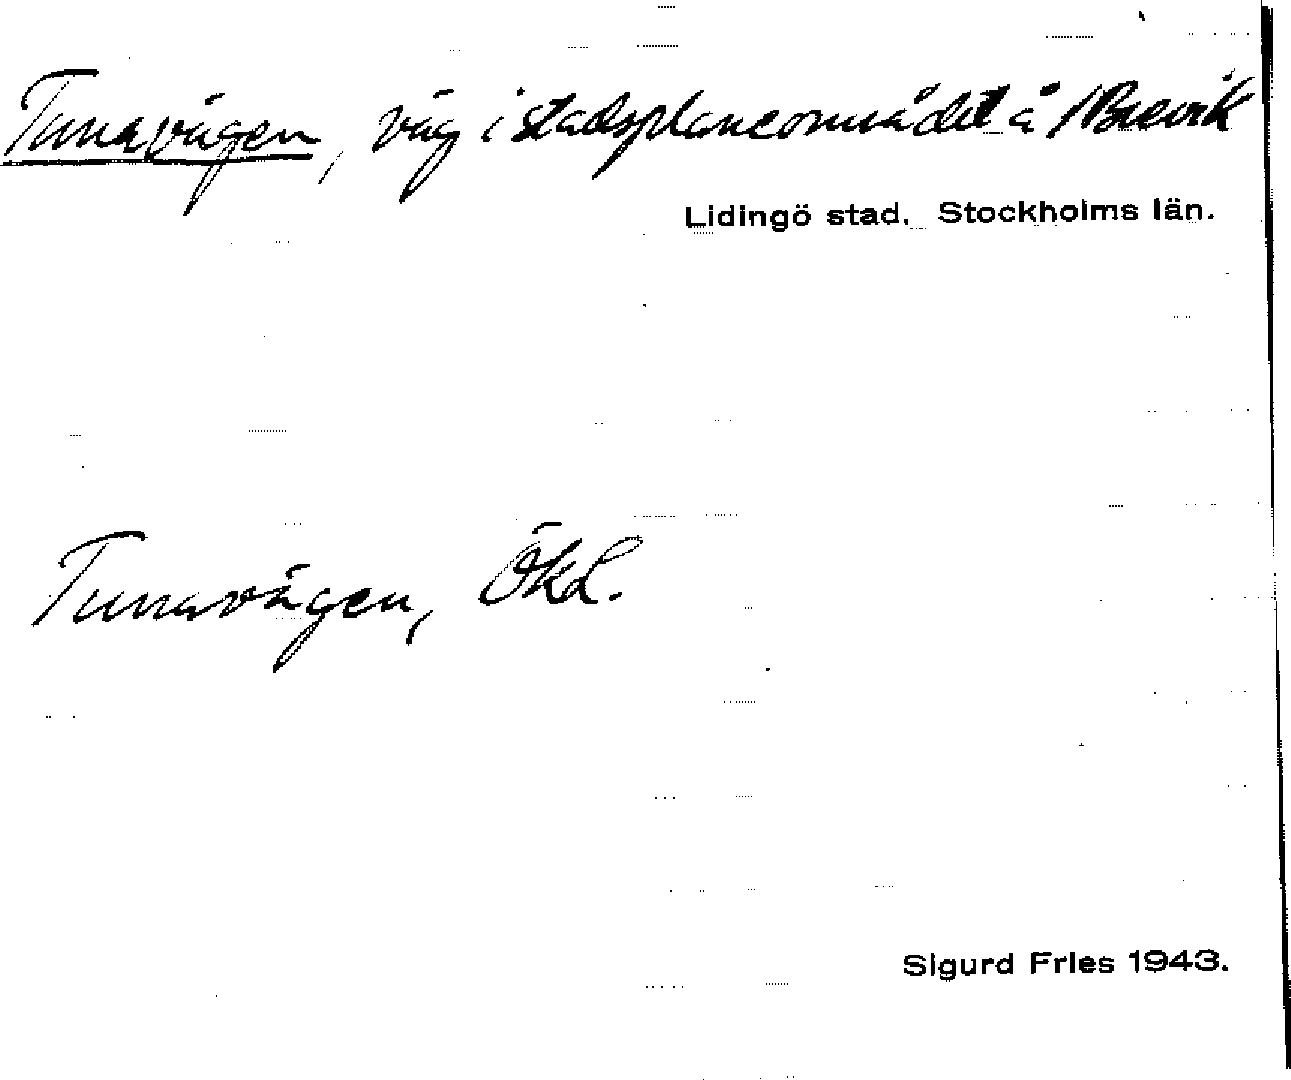 Tunavägen, väg i stadsplaneområdet å /Brevik
Lidingö stad. Stockholms län.
Tunavägen, Ökd.
Sigurd Fries 1943.